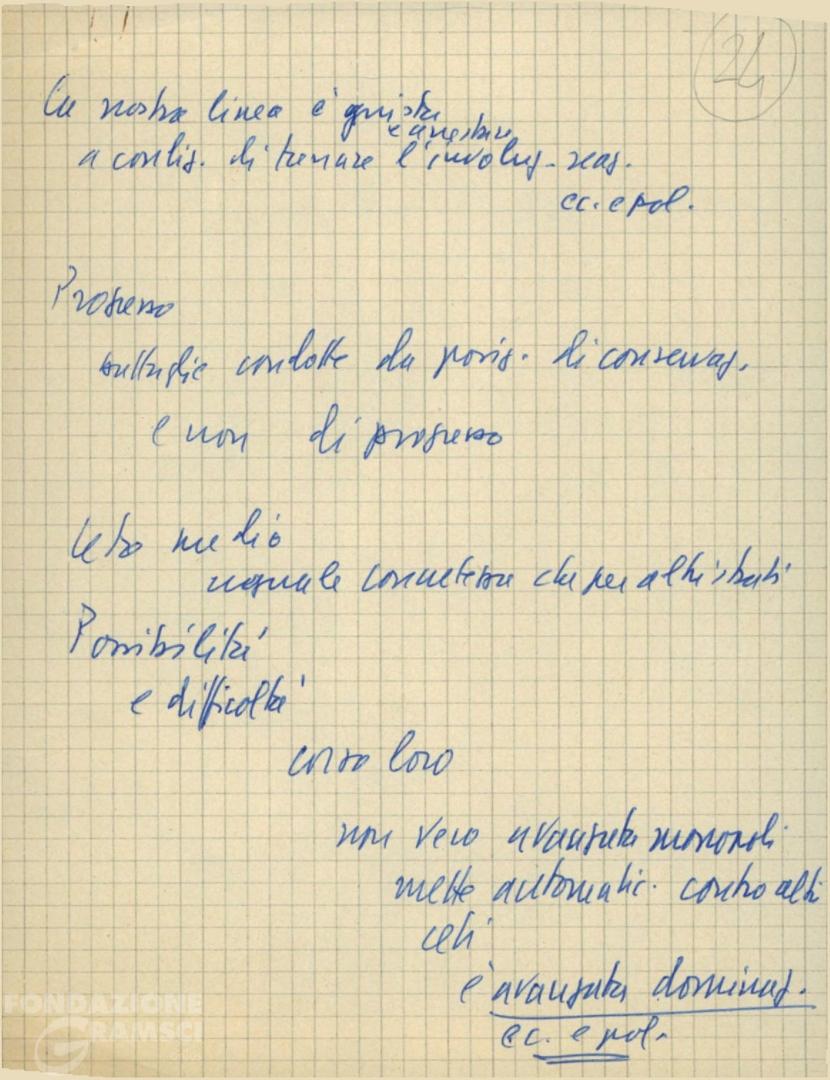 24
La nostra linea è giusta
e arrestare
a condiz. di frenare l'involuz. reaz.
ec. e pol.
Progresso
battaglie condotte da posiz. di conservaz.
e non di progresso
Ceto medio
uguale concretezza che per altri strati
Possibilità
e difficoltà
corso loro
non vero avanzata monopoli
mette automatic. contro altri
ceti
è avanzata dominaz.
ec. e pol.
FONDAZIONE
GRAMSCI